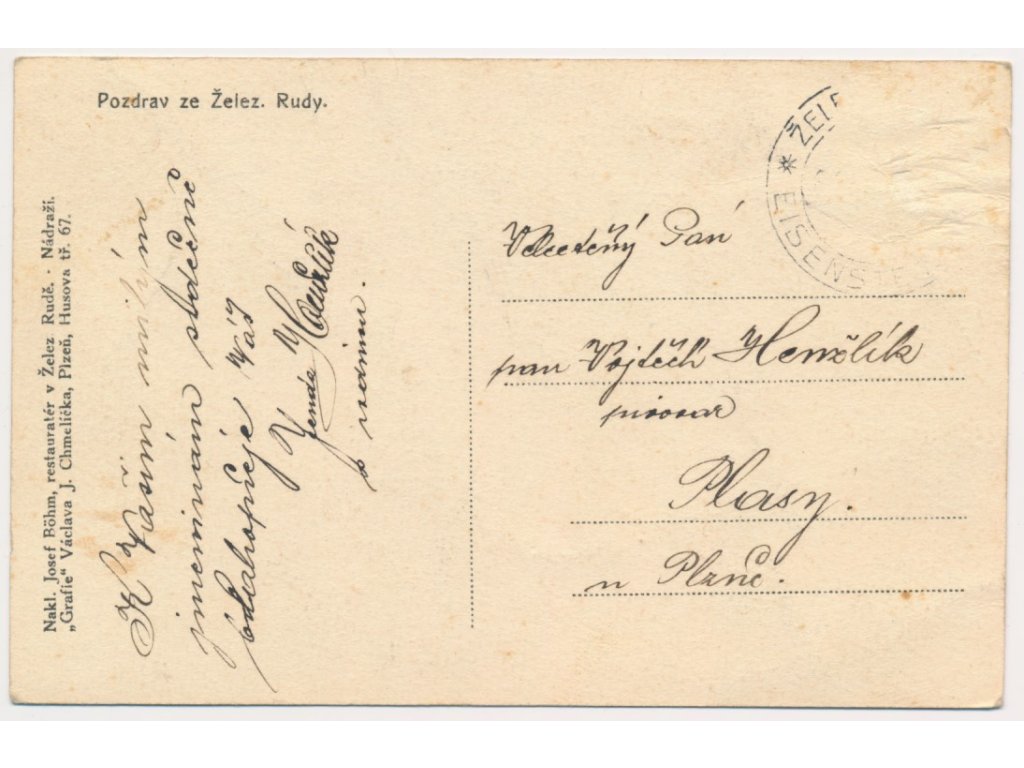 Pozdrav ze Želez. Rudy.
Nakl. Josef Böhm, restauratér v Želez Rudě. · Nádraží.
„Grafie“ Václava J. Chmelíčka, Plzeň, Husova tř. 67.
K Vašim milým
jmeninám srdečně
blahopřeje Vás
Jenda Henžlík
s rodinou.
ŽELE
* EISENSTEIN
Velectěný Pán
pan Vojtěch Henžlík
pivovar
Plasy.
u Plzně.